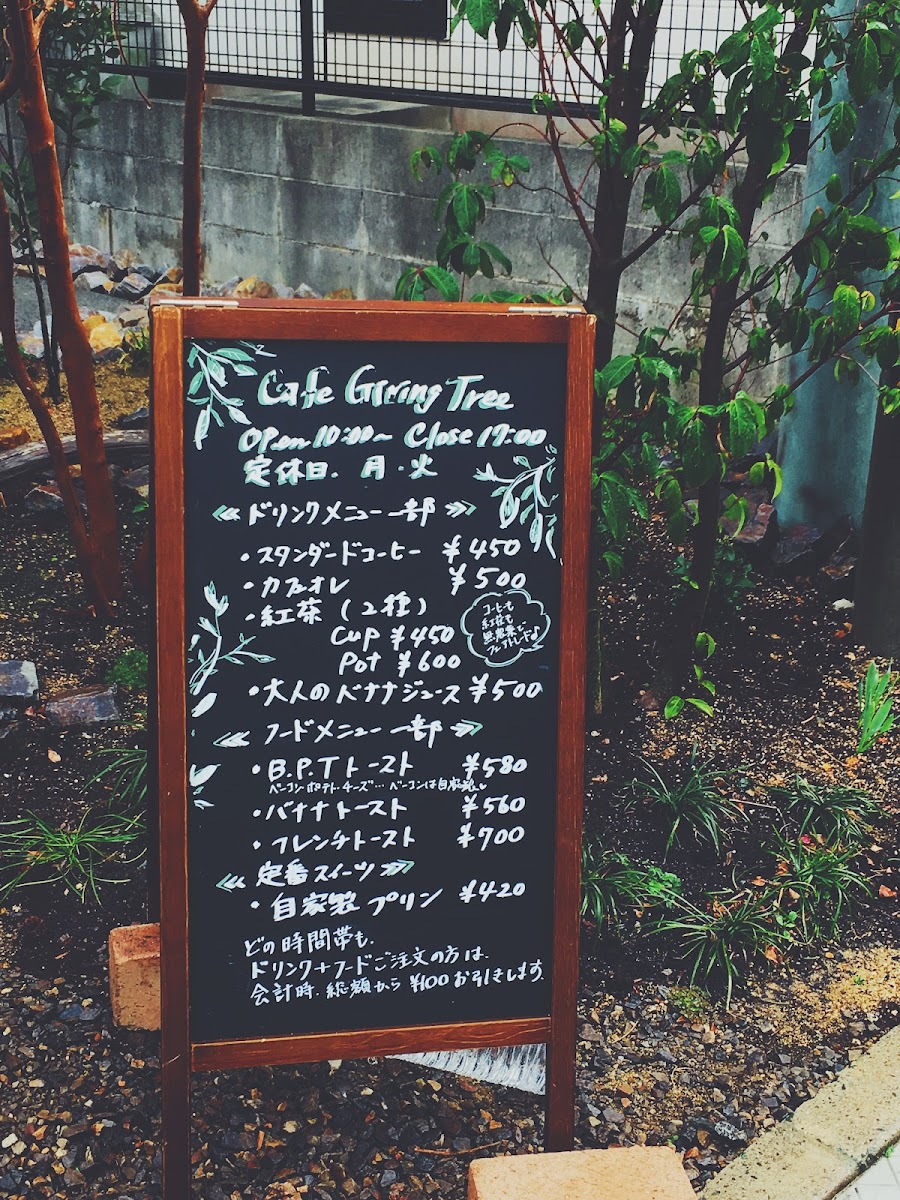 Cafe Giving Tree
Open 10:00~ Close 17:00
定休日. 月・火
ドリンクメニュー 一部
・スタンダードコーヒー ¥450
・カフェオレ ¥500
・紅茶 (2種)
Cup ¥450
Pot ¥600
コーヒーも
紅茶も
無農薬で
フェアトレード♪
・大人のバナナジュース ¥500
フードメニュー 一部
・B.P.Tトースト ¥580
ベーコン・ポテト・チーズ… ベーコンは自家製
・バナナトースト ¥560
・フレンチトースト ¥700
定番スイーツ
・自家製プリン ¥420
どの時間帯も、
ドリンク+フードご注文の方は、
会計時、総額から ¥100お引きします。